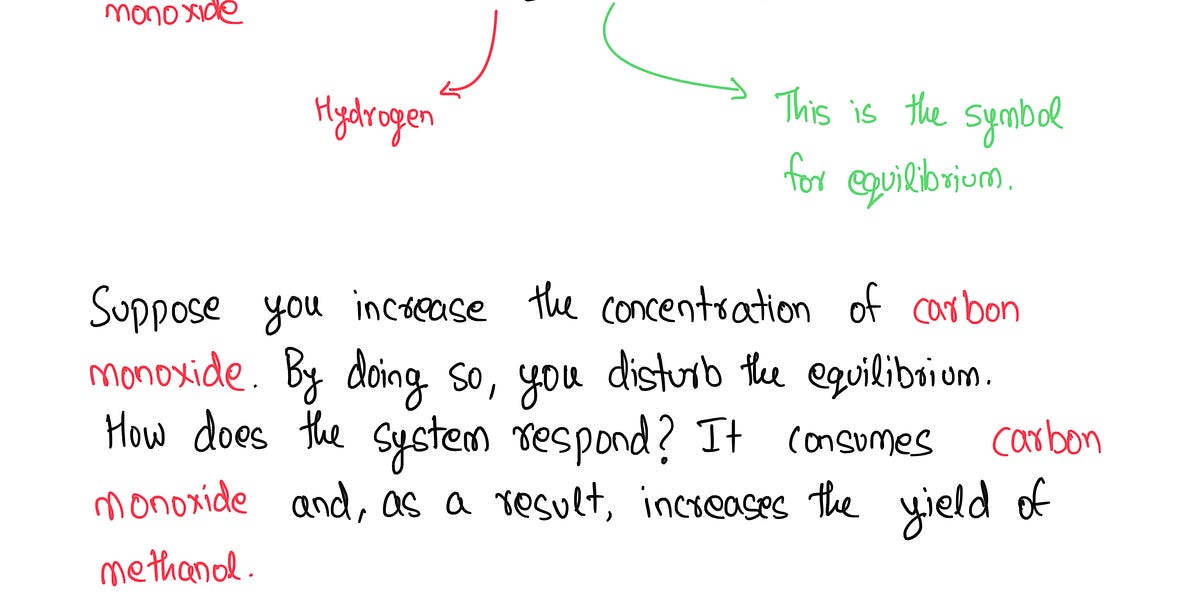 monoxide
Hydrogen
This is the symbol
for equilibrium.
Suppose you increase the concentration of carbon
monoxide. By doing so, you disturb the equilibrium.
How does the system respond? It consumes carbon
monoxide and, as a result, increases the yield of
methanol.